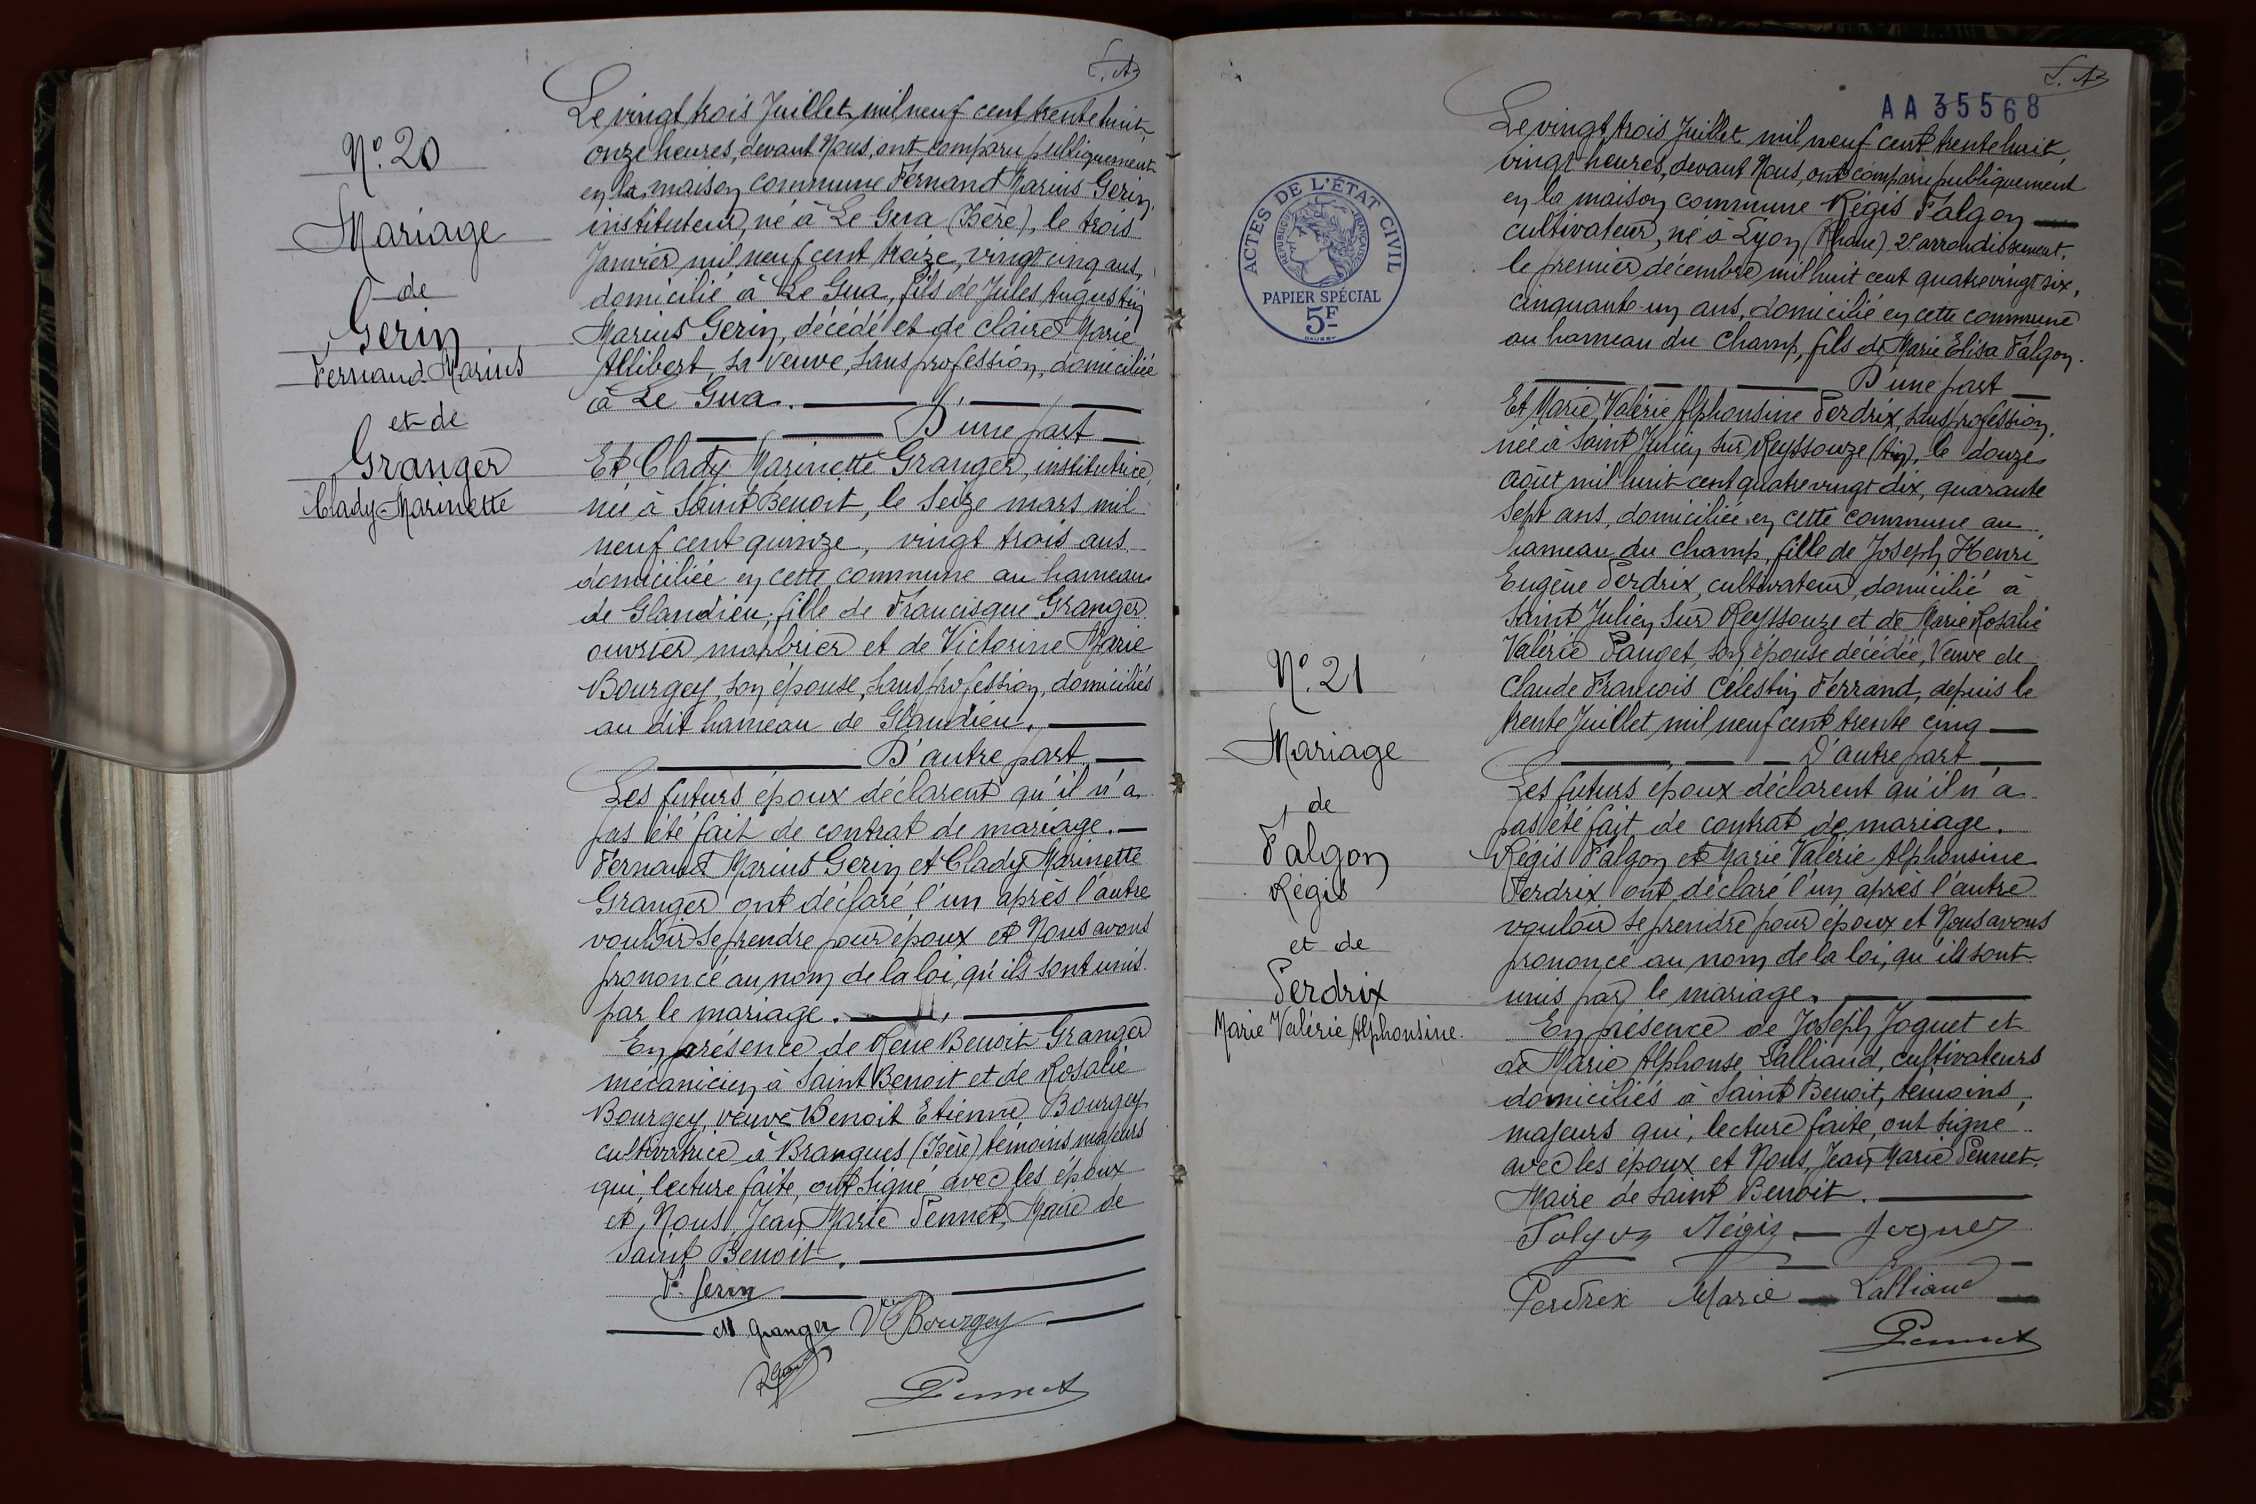 N° 20
Mariage
de
Gerin
Fernand Marius
et de
Granger
Clady Marinette
Le vingt trois Juillet mil neuf cent trente huit
onze heures, devant Nous, ont comparu publiquement
en la maison commune Fernand Marius Gerin,
instituteur, né à Le Gua (Isère), le trois
Janvier mil neuf cent treize, vingt cinq ans,
domicilié à Le Gua, fils de Jules Augustin
Marius Gerin, décédé et de Claire Marie
Allibert, sa veuve, sans profession, domiciliée
à Le Gua.
D'une part
Et Clady Marinette Granger, institutrice,
née à Saint Benoit, le seize mars mil
neuf cent quinze, vingt trois ans
domiciliée en cette commune au hameau
de Glandieu, fille de Francisque Granger
ouvrier marbrier et de Victorine Marie
Bourgey, son épouse, sans profession, domiciliés
au dit hameau de Glandieu.
D'autre part
Les futurs époux déclarent qu'il n'a
pas été fait de contrat de mariage.
Fernand Marius Gerin et Clady Marinette
Granger ont déclaré l'un après l'autre
vouloir se prendre pour époux et Nous avons
prononcé au nom de la loi, qu'ils sont unis
par le mariage.
En présence de René Benoit Granger
mécanicien à Saint Benoit et de Rosalie
Bourgey, veuve Benoit Etienne Bourgey
cultivatrice à Brangues (Isère) témoins majeurs
qui, lecture faite, ont signé avec les époux
et Nous Jean Marie Pennet, Maire de
Saint Benoit.
F. Gerin
M Granger Vve Bourgey
Pennet
AA 35568
ACTES DE L'ÉTAT CIVIL
RÉPUBLIQUE FRANÇAISE
PAPIER SPÉCIAL
5F
N° 21
Mariage
de
Falgon
Régis
et de
Perdrix
Marie Valérie Alphonsine.
Le vingt trois Juillet mil neuf cent trente huit,
vingt heures, devant Nous, ont comparu publiquement
en la maison commune Régis Falgon
cultivateur, né à Lyon (Rhône) 2e arrondissement,
le premier décembre mil huit cent quatre vingt six,
cinquante un ans, domicilié en cette commune
au hameau du Champ, fils de Marie Elisa Falgon.
D'une part
Et Marie Valérie Alphonsine Perdrix, sans profession,
née à Saint Julien sur Reyssouze (Ain), le douze
août mil huit cent quatre vingt dix, quarante
sept ans, domiciliée en cette commune au
hameau du Champ, fille de Joseph Henri
Eugène Perdrix, cultivateur, domicilié à
Saint Julien sur Reyssouze et de Marie Rosalie
Valérie Pauget, son épouse décédée, Veuve de
Claude François Célestin Ferrand, depuis le
trente Juillet mil neuf cent trente cinq
D'autre part
Les futurs époux déclarent qu'il n'a
pas été fait de contrat de mariage.
Régis Falgon et Marie Valérie Alphonsine
Perdrix ont déclaré l'un après l'autre
vouloir se prendre pour époux et Nous avons
prononcé au nom de la loi, qu'ils sont
unis par le mariage.
En présence de Joseph Joguet et
de Marie Alphonse Lalliand, cultivateurs
domiciliés à Saint Benoit, témoins,
majeurs qui, lecture faite, ont signé
avec les époux et Nous Jean Marie Pennet,
Maire de Saint Benoit.
Falgon Régis Joguet
Perdrix Marie Lalliand
Pennet